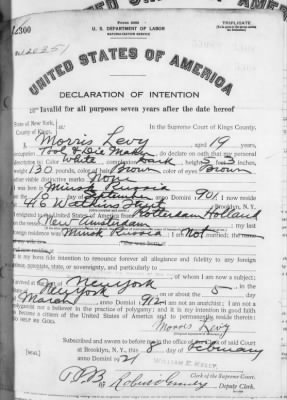 U. S. DEPARTMENT OF LABOR
NATURALIZATION SERVICE
TRIPLICATE
UNITED STATES OF AMERICA
DECLARATION OF INTENTION
Invalid for all purposes seven years after the date hereof
State of New York,
County of Kings,
In the Supreme Court of Kings County.
Morris Levy aged 19 years,
occupation Tool & Die Maker do declare on oath that my personal
description is: Color White, complexion Dark, height 5 feet 3 inches,
weight 130 pounds, color of hair Brown, color of eyes Brown
other visible distinctive marks None
I was born in Minsk Russia
on the day of September, anno Domini 1901; I now reside
at Watkins Street Brooklyn, N. Y.
I emigrated to the United States of America from Rotterdam Holland
on the vessel New Amsterdam; my last
foreign residence was Minsk Russia; I am not married; the name
It is my bona fide intention to renounce forever all allegiance and fidelity to any foreign
prince, potentate, state, or sovereignty, and particularly to
of whom I am now a subject;
arrived at the port of New York
New York on or about the 5 day
March, anno Domini 1912; I am not an anarchist; I am not a
polygamist nor a believer in the practice of polygamy; and it is my intention in good faith
to become a citizen of the United States of America and to permanently reside therein:
SO HELP ME GOD.
Morris Levy
Subscribed and sworn to before me in the office of the Clerk of said Court
at Brooklyn, N. Y., this 8 day of February
anno Domini 1921
[SEAL]
WILLIAM E. KELLY
Clerk of the Supreme Court.
Deputy Clerk.